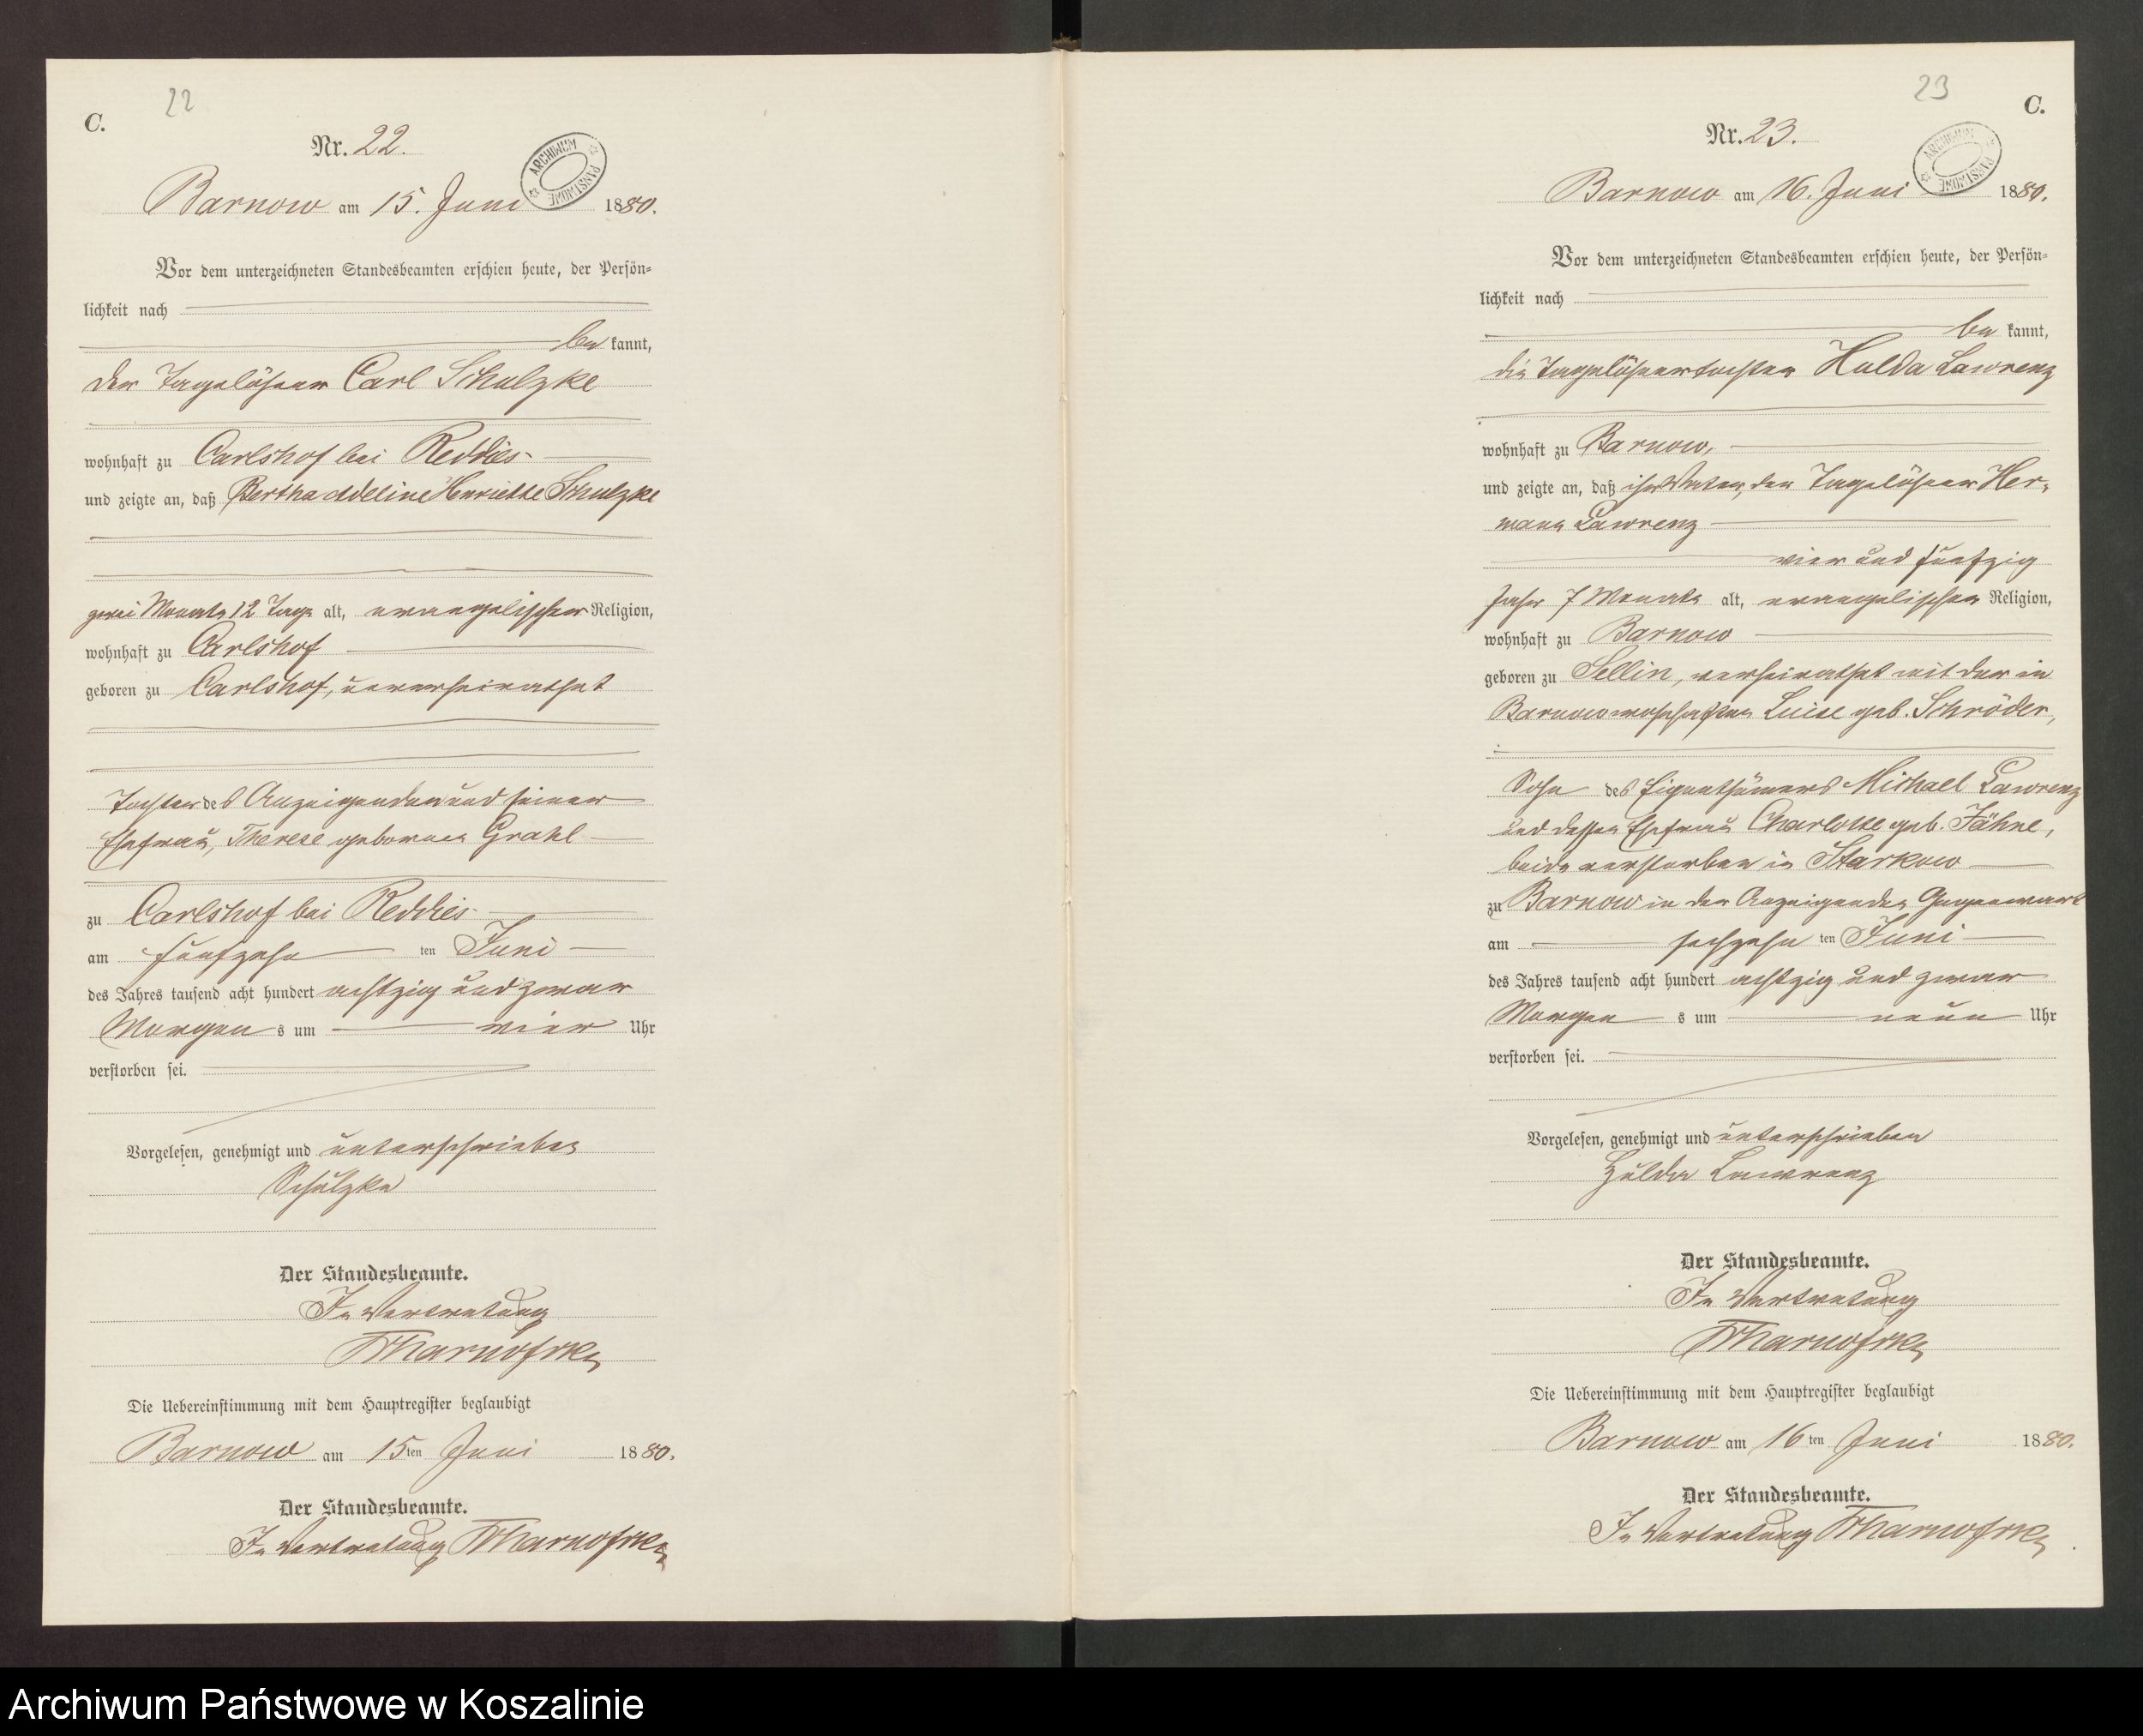 22
C.
Nr. 22.
ARCHIWUM PAŃSTWOWE
Barnow am 15. Juni 1880.
Vor dem unterzeichneten Standesbeamten erschien heute, der Persön-
lichkeit nach
be kannt,
der Tagelöhner Carl Schulzke
wohnhaft zu Carlshof bei Reddies
und zeigte an, daß Bertha Adeline Henriette Schulzke
zwei Monate 12 Tage alt, evangelischer Religion,
wohnhaft zu Carlshof
geboren zu Carlshof, unverheirathet
Tochter des Anzeigenden und seiner
Ehefrau, Therese geborenen Grahl
zu Carlshof bei Reddies
am fünfzehn ten Juni
des Jahres tausend acht hundert achtzig und zwar
Morgen s um vier Uhr
verstorben sei.
Vorgelesen, genehmigt und unterschrieben
Schulzke
Der Standesbeamte.
In Vertretung
Die Uebereinstimmung mit dem Hauptregister beglaubigt
Barnow am 15ten Juni 1880.
Der Standesbeamte.
In Vertretung
23
C.
Nr. 23.
ARCHIWUM PAŃSTWOWE
Barnow am 16. Juni 1880.
Vor dem unterzeichneten Standesbeamten erschien heute, der Persön-
lichkeit nach
be kannt,
die Tagelöhnertochter Hulda Lawrenz
wohnhaft zu Barnow,
und zeigte an, daß ihr Vater, der Tagelöhner Her-
mann Lawrenz
vier und fünfzig
Jahr 7 Monate alt, evangelischer Religion,
wohnhaft zu Barnow
geboren zu Sellin, verheirathet mit der in
Barnow wohnhaften Luise geb. Schröder,
Sohn des Eigenthümers Michael Lawrenz
und dessen Ehefrau Charlotte geb. Jähne,
beide verstorben in Starkow
zu Barnow in der Anzeigenden Gegenwart
am sechzehn ten Juni
des Jahres tausend acht hundert achtzig und zwar
Morgen s um neun Uhr
verstorben sei.
Vorgelesen, genehmigt und unterschrieben
Hulda Lawrenz
Der Standesbeamte.
In Vertretung
Die Uebereinstimmung mit dem Hauptregister beglaubigt
Barnow am 16 ten Juni 1880.
Der Standesbeamte.
In Vertretung
Archiwum Państwowe w Koszalinie